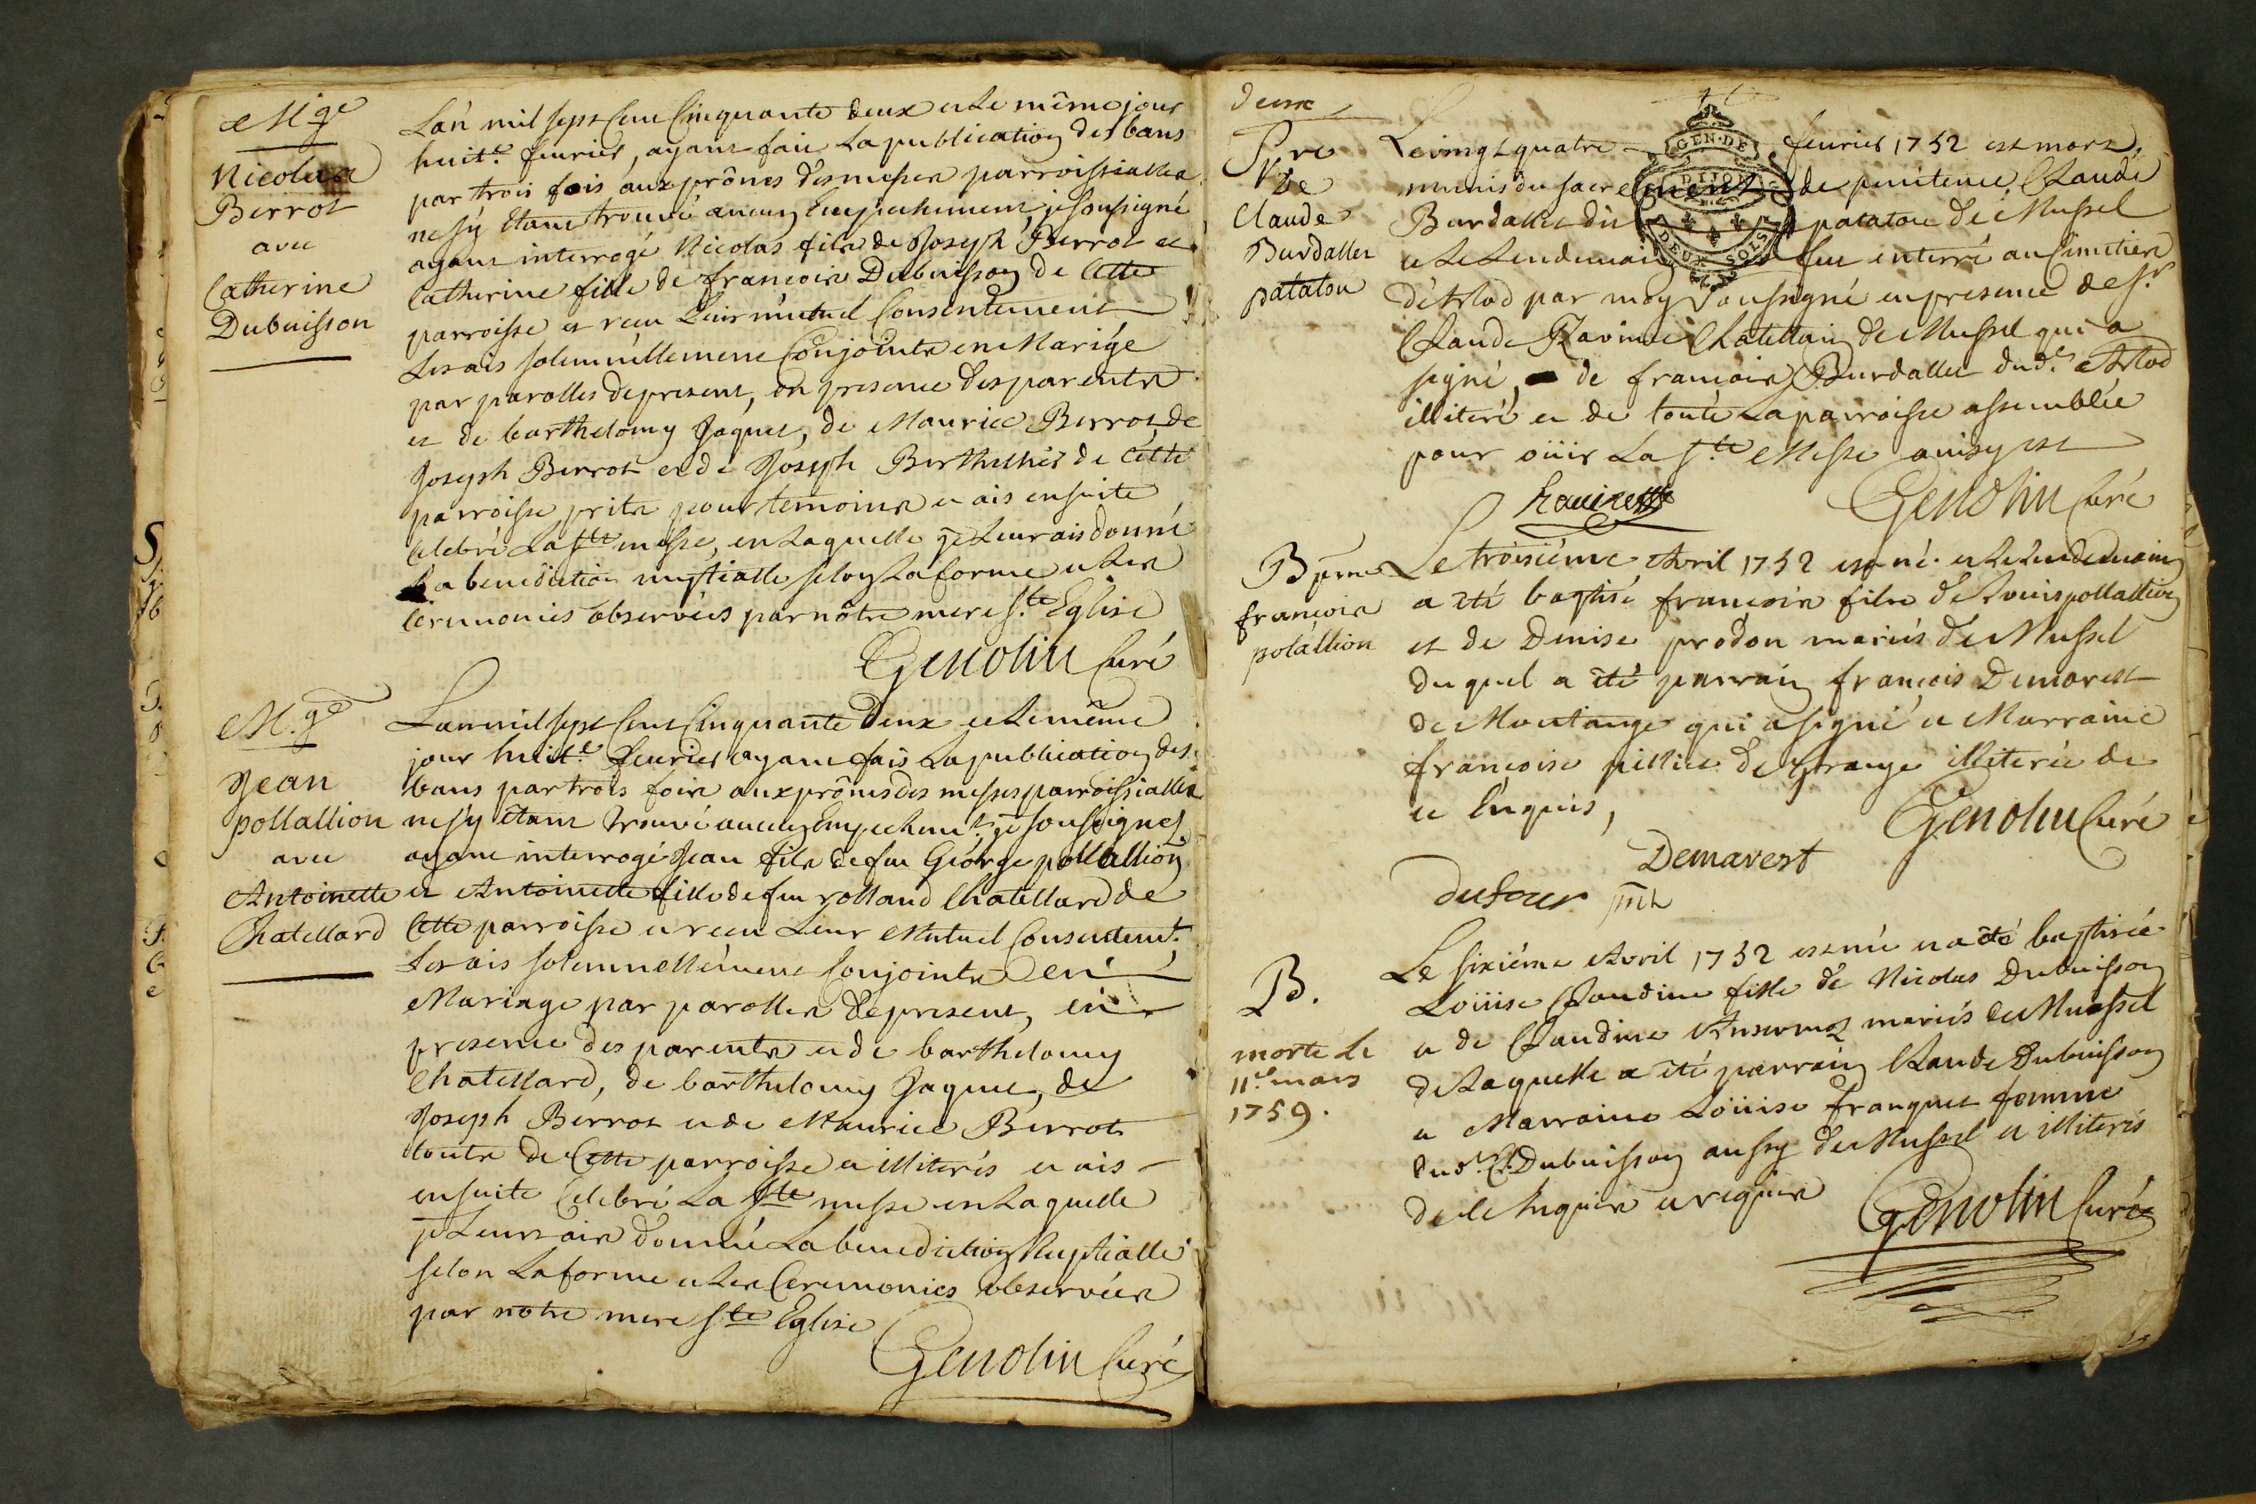 M.ge
Nicolas
Berrot
avec
Catherine
Dubuisson
L'an mil sept Cent Cinquante deux et le même jour
huit.e feurier, ayant fait la publication des bans
par trois fois aux prônes des messes parroissialles
ne s'y étant trouvé aucun Empechement je soussigné
ayant interrogé Nicolas fils de Joseph Berrot et
Catherine fille de francois Dubuisson de Cette
parroisse et recu Leur mutuel Consentement
Les ais solemnellement Conjoints en Marige
par parolles de present, en presence des parents
et de barthelomy Jaquet, de Maurice Berrot, de
Joseph Berrot et de Joseph Berthelhet de cette
parroisse prits pour temoins et ais ensuite
celebré La ste messe, en Laquelle je Leur ais donné
La benediction nuptialle selon La forme et Les
ceremonies observées par nôtre mere s.te Eglise
Genolin Curé
M.ge
Jean
pollallion
avec
Antoinette
Chatellard
L'an mil sept Cent Cinquante Deux et le même
jour huit.e feurier ayant fais La publication des
bans par trois fois aux prônes des messes parroissialles
ne s'y étant trouvé aucun Empechem.t je soussigné
ayant interrogé Jean fils de feu George pollallion
et Antoinette fille de feu rolland Chatellard de
Cette parroisse et recu Leur Mutuel Consentem.t
Les ais solemnellement Conjoints en
Mariage par parolles de present, en
presence des parents et de barthelomy
Chatellard, de barthelomy Jaquet, de
Joseph Berrot et de Maurice Berrot
touts de Cette parroisse et illiterés et ais
ensuite Celebré La ste messe en Laquelle
je Leurs ais donné La benediction Nuptialle
selon La forme et Les Ceremonies observées
par notre mere ste Eglise
Genolin Curé
deux
Claude
Burdallet
patatou
GEN. DE
DIJON
DEUX SOLS
Le vingt quatre feurier 1752 est mort,
munis du sacrement de penitence, Claude
Burdallet dit patatou de Mussel
et Le Lendemain fut interré au Cimetiere
d'Arlod par moy soussigné en presence de s.r
Claude Ravinet Chatellain de Mussel qui a
signé, de francois Burdallet dud. Arlod
illiteré et de toute La parroisse assemblée
pour oüir La s.te Messe
Ravinet
Genolin Curé
francois
polallion
Le troisiéme Avril 1752 est né et Le Lendemain
a été baptisé francois fils de Louis pollallion
et de Denise prodon mariés de Mussel
duquel a été parrain francois Demarest
de Montange qui a signé et Marraine
francoise de Grange illiterée de
ce Enquis,
Genolin Curé
Demarest
dufour
B.
morte Le
11.e mars
1759.
Le sixiéme Avril 1752 est née et a été baptisée
Loüise Claudine fille de Nicolas Dubuisson
et de Claudine Ansermoz mariés de Mussel
de Laquelle a été parrain Claude Dubuisson
et Marraine Loüise franquet femme
dud. Cl. Dubuisson aussy de Mussel et illiterés
de ce Enquis et requis
Genolin Curé